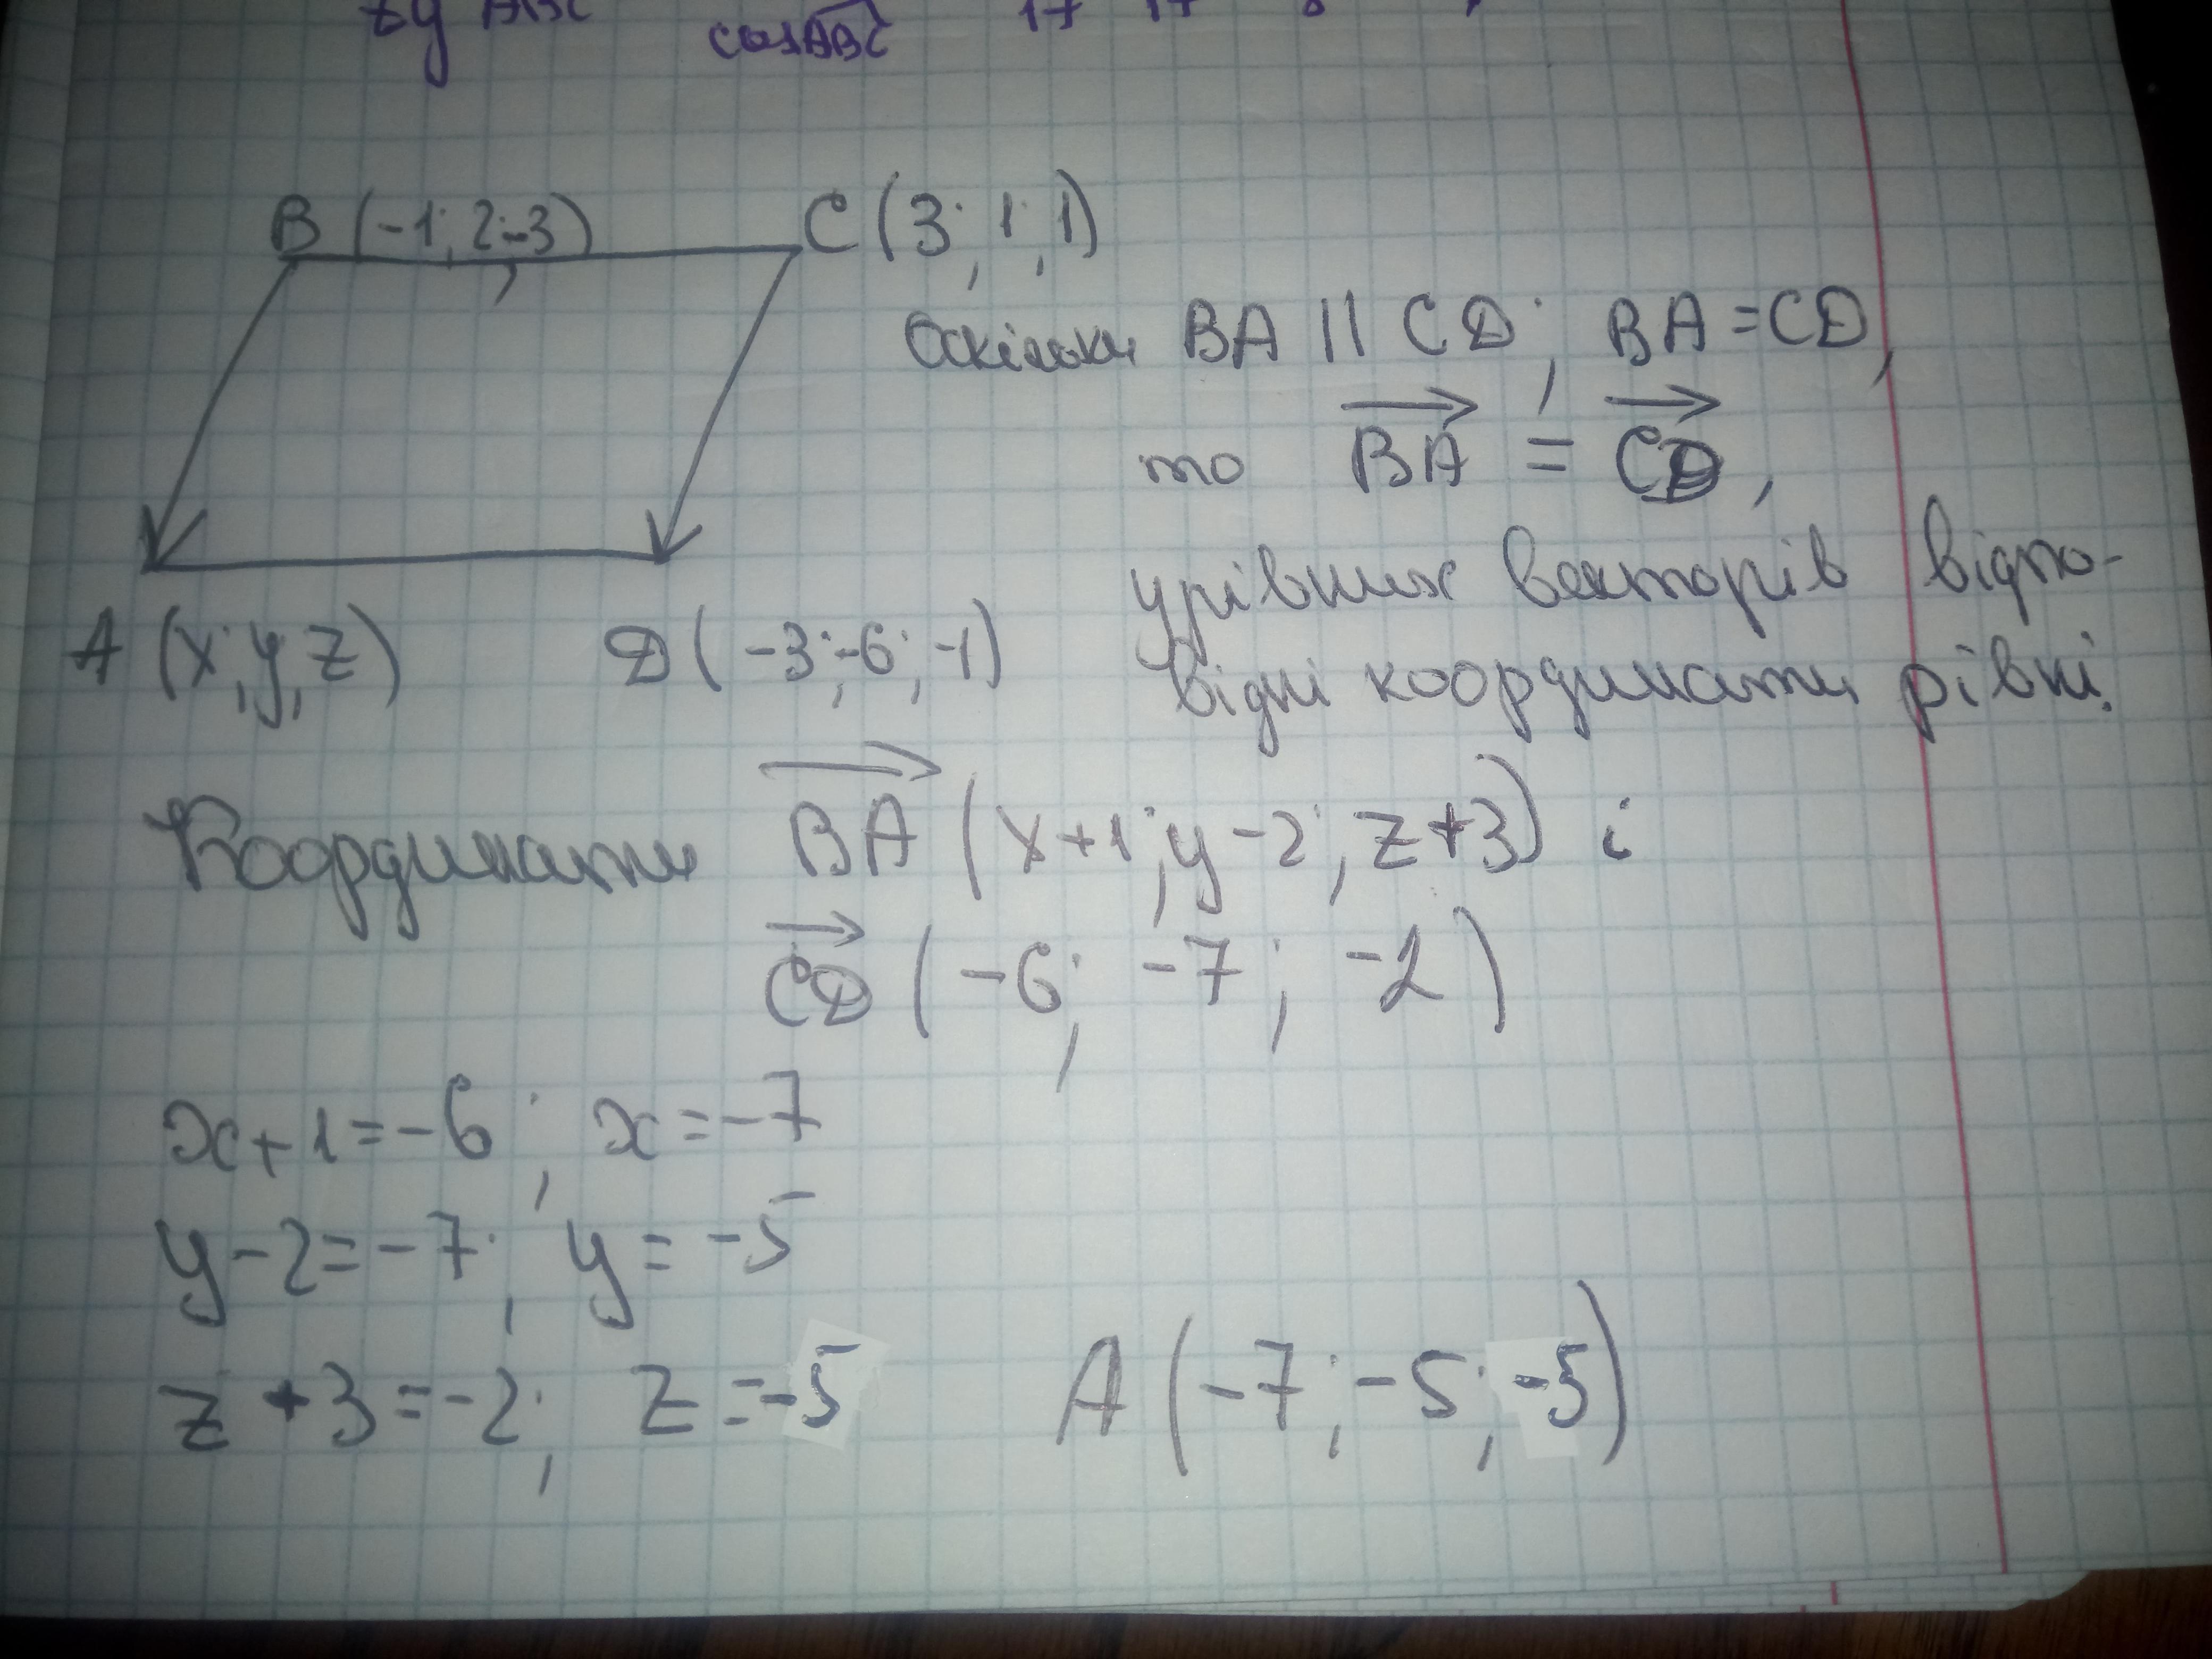 cosABC 17 17
B (-1; 2; -3) C (3; 1; 1)
Оскільки BA || CD; BA = CD,
то BA = CD,
у рівних векторів відпо-
A (x; y; z) D (-3; -6; -1)
відні координати рівні.
Координати BA (x+1; y-2; z+3) і
CD (-6; -7; -2)
x+1=-6; x=-7
y-2=-7; y=-5
z+3=-2; z=-5 A (-7; -5; -5)